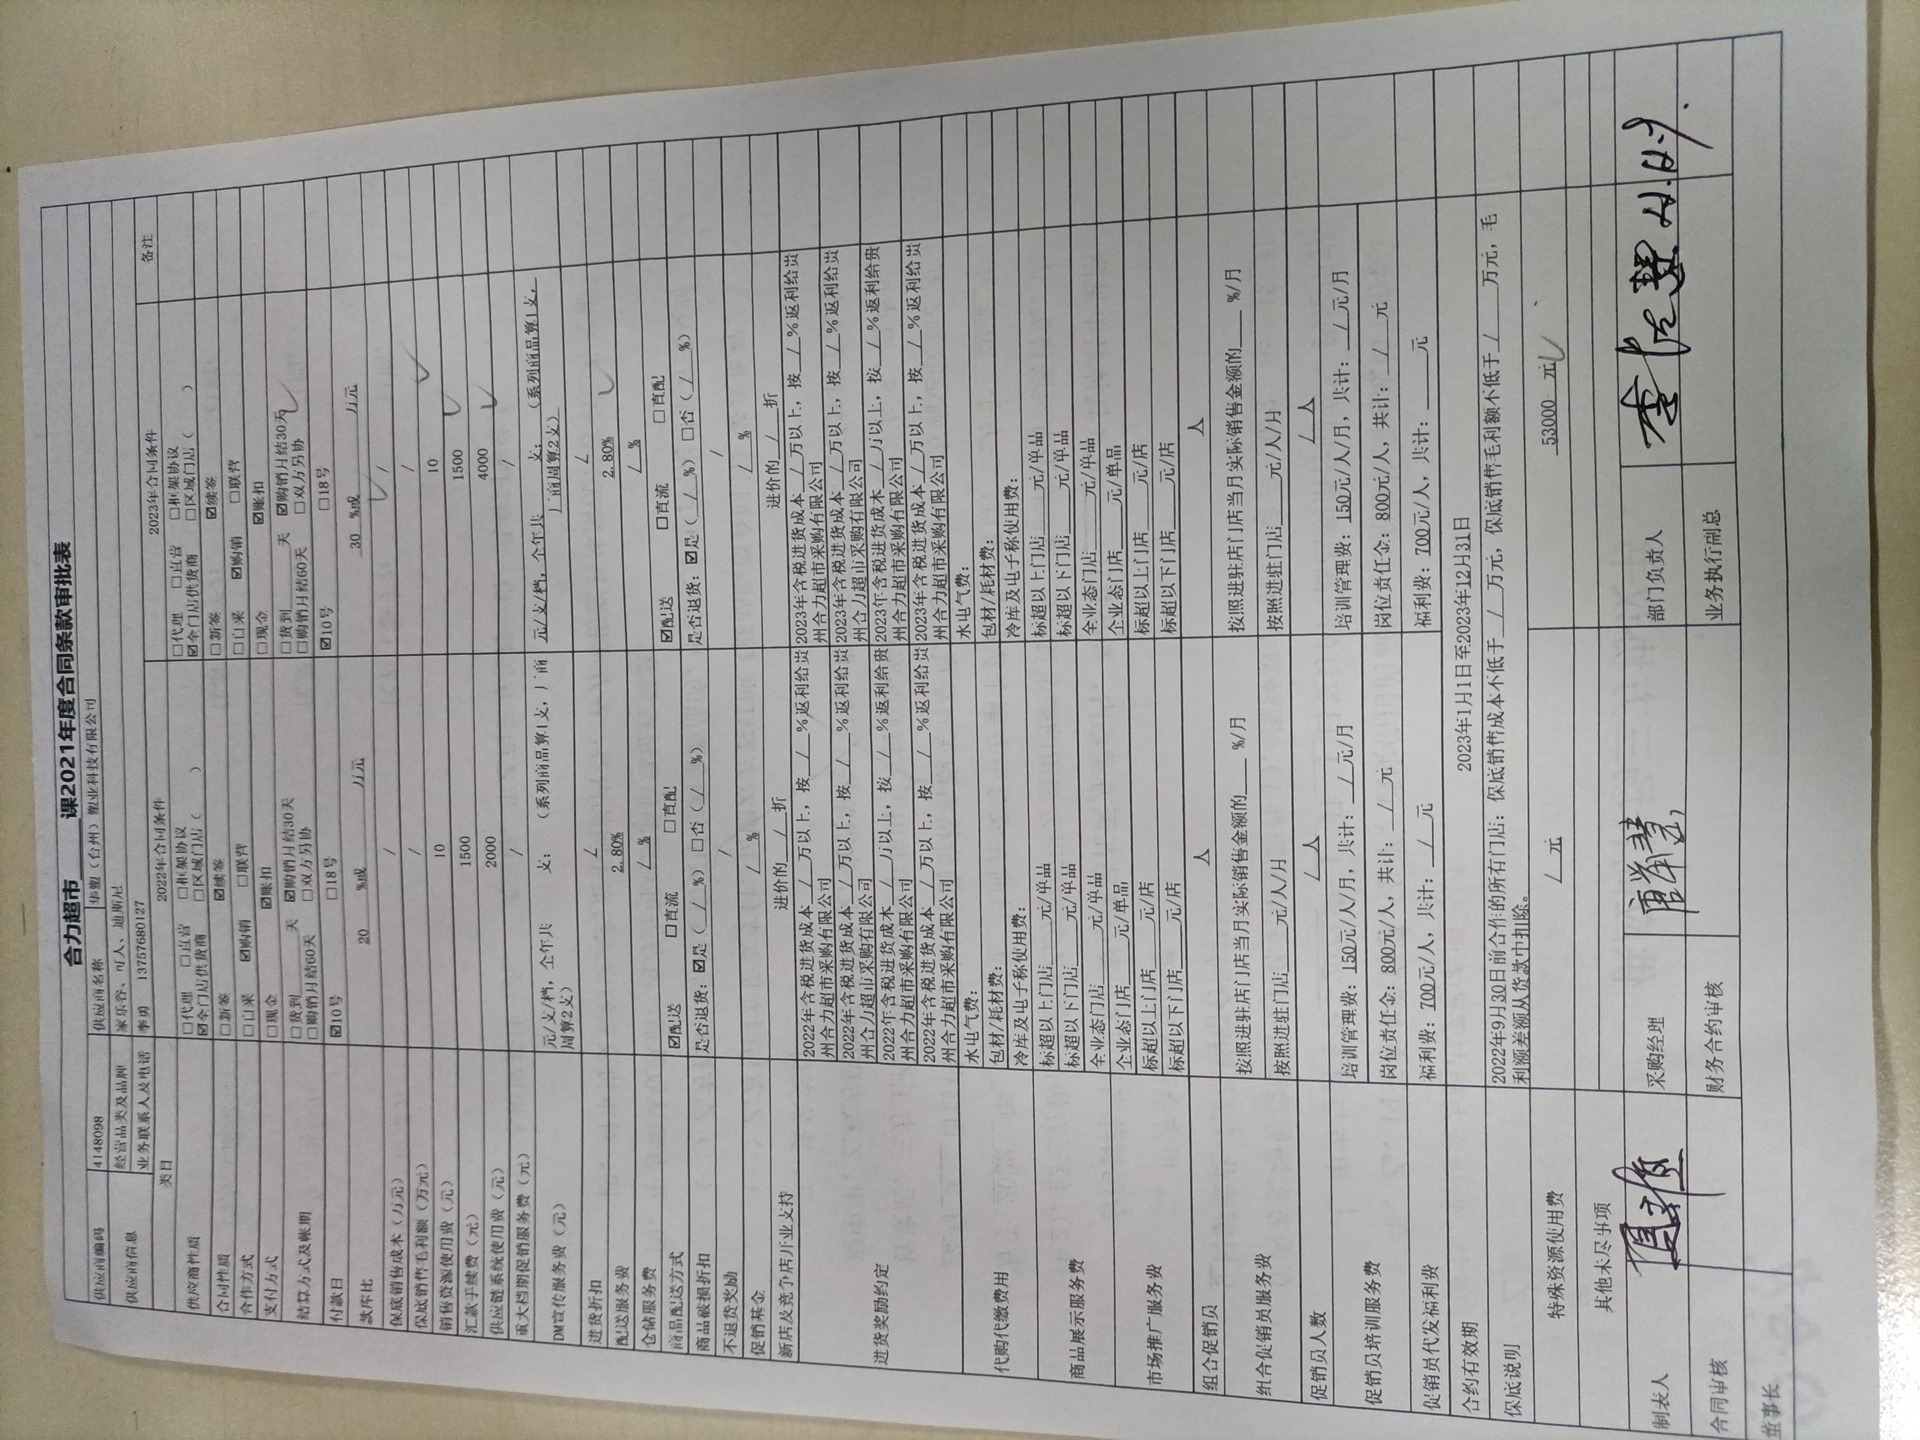 合力超市 课2021年度合同条款审批表
供应商编码 4148098 供应商名称 华塑(台州)塑业科技有限公司
供应商信息 经营品类及品牌 家乐蓉、可人、迪斯尼
业务联系人及电话 李勇 13757680127
类目 2022年合同条件 2023年合同条件 备注
供应商性质 □代理 □直营 □框架协议 □代理 □直营 □框架协议
☑全门店供货商 □区域门店( ) ☑全门店供货商 □区域门店( )
合同性质 □新签 ☑续签 □新签 ☑续签
合作方式 □自采 ☑购销 □联营 □自采 ☑购销 □联营
支付方式 □现金 ☑账扣 □现金 ☑账扣
结算方式及账期 □货到 天 ☑购销月结30天 □货到 天 ☑购销月结30天
□购销月结60天 □双方另协 □购销月结60天 □双方另协
付款日 ☑10号 □18号 ☑10号 □18号
款库比 20 %或 万元 30 %或 万元
保底销售成本(万元) / /
保底销售毛利额(万元) / /
销售资源使用费(元) 10 10
汇款手续费(元) 1500 1500
供应链系统使用费(元) 2000 4000
重大档期促销服务费(元) / /
DM宣传服务费(元) 元/支/档,全年共 支;(系列商品算1支,厂商 元/支/档,全年共 支;(系列商品算1支,
周算2支) 厂商周算2支)
进货折扣 / /
配送服务费 2.80% 2.80%
仓储服务费 / % / %
商品配送方式 ☑配送 □直流 □直配 ☑配送 □直流 □直配
商品破损折扣 是否退货:☑是( / %) □否( / %) 是否退货:☑是( / %) □否( / %)
不退货奖励 / /
促销基金 / % / %
新店及竞争店开业支持 进价的 / 折 进价的 / 折
进货奖励约定 2022年含税进货成本 / 万以上,按 / %返利给贵 2023年含税进货成本 / 万以上,按 / %返利给贵
州合力超市采购有限公司 州合力超市采购有限公司
2022年含税进货成本 / 万以上,按 / %返利给贵 2023年含税进货成本 / 万以上,按 / %返利给贵
州合力超市采购有限公司 州合力超市采购有限公司
2022年含税进货成本 / 万以上,按 / %返利给贵 2023年含税进货成本 / 万以上,按 / %返利给贵
州合力超市采购有限公司 州合力超市采购有限公司
2022年含税进货成本 / 万以上,按 / %返利给贵 2023年含税进货成本 / 万以上,按 / %返利给贵
州合力超市采购有限公司 州合力超市采购有限公司
代购代缴费用 水电气费: 水电气费:
包材/耗材费: 包材/耗材费:
冷库及电子称使用费: 冷库及电子称使用费:
商品展示服务费 标超以上门店 元/单品 标超以上门店 元/单品
标超以下门店 元/单品 标超以下门店 元/单品
全业态门店 元/单品 全业态门店 元/单品
市场推广服务费 企业态门店 元/单品 企业态门店 元/单品
标超以上门店 元/店 标超以上门店 元/店
标超以下门店 元/店 标超以下门店 元/店
组合促销员 人 人
组合促销员服务费 按照进驻店门店当月实际销售金额的 %/月 按照进驻店门店当月实际销售金额的 %/月
按照进驻门店 元/人/月 按照进驻门店 元/人/月
促销员人数 / 人 / 人
促销员培训服务费 培训管理费:150元/人/月,共计: / 元/月 培训管理费:150元/人/月,共计: / 元/月
岗位责任金:800元/人,共计: / 元 岗位责任金:800元/人,共计: / 元
促销员代发福利费 福利费:700元/人,共计: / 元 福利费:700元/人,共计: 元
合约有效期 2023年1月1日至2023年12月31日
保底说明 2022年9月30日前合作的所有门店;保底销售成本不低于 / 万元,保底销售毛利额不低于 / 万元,毛
利额差额从货款中扣除。
特殊资源使用费 / 元 53000 元
其他未尽事项
制表人 采购经理 部门负责人
合同审核 财务合约审核 业务执行副总
董事长